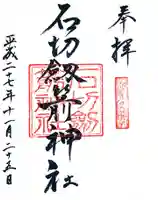 奉拝
石切劔箭神社
平成二十七年十一月二十五日